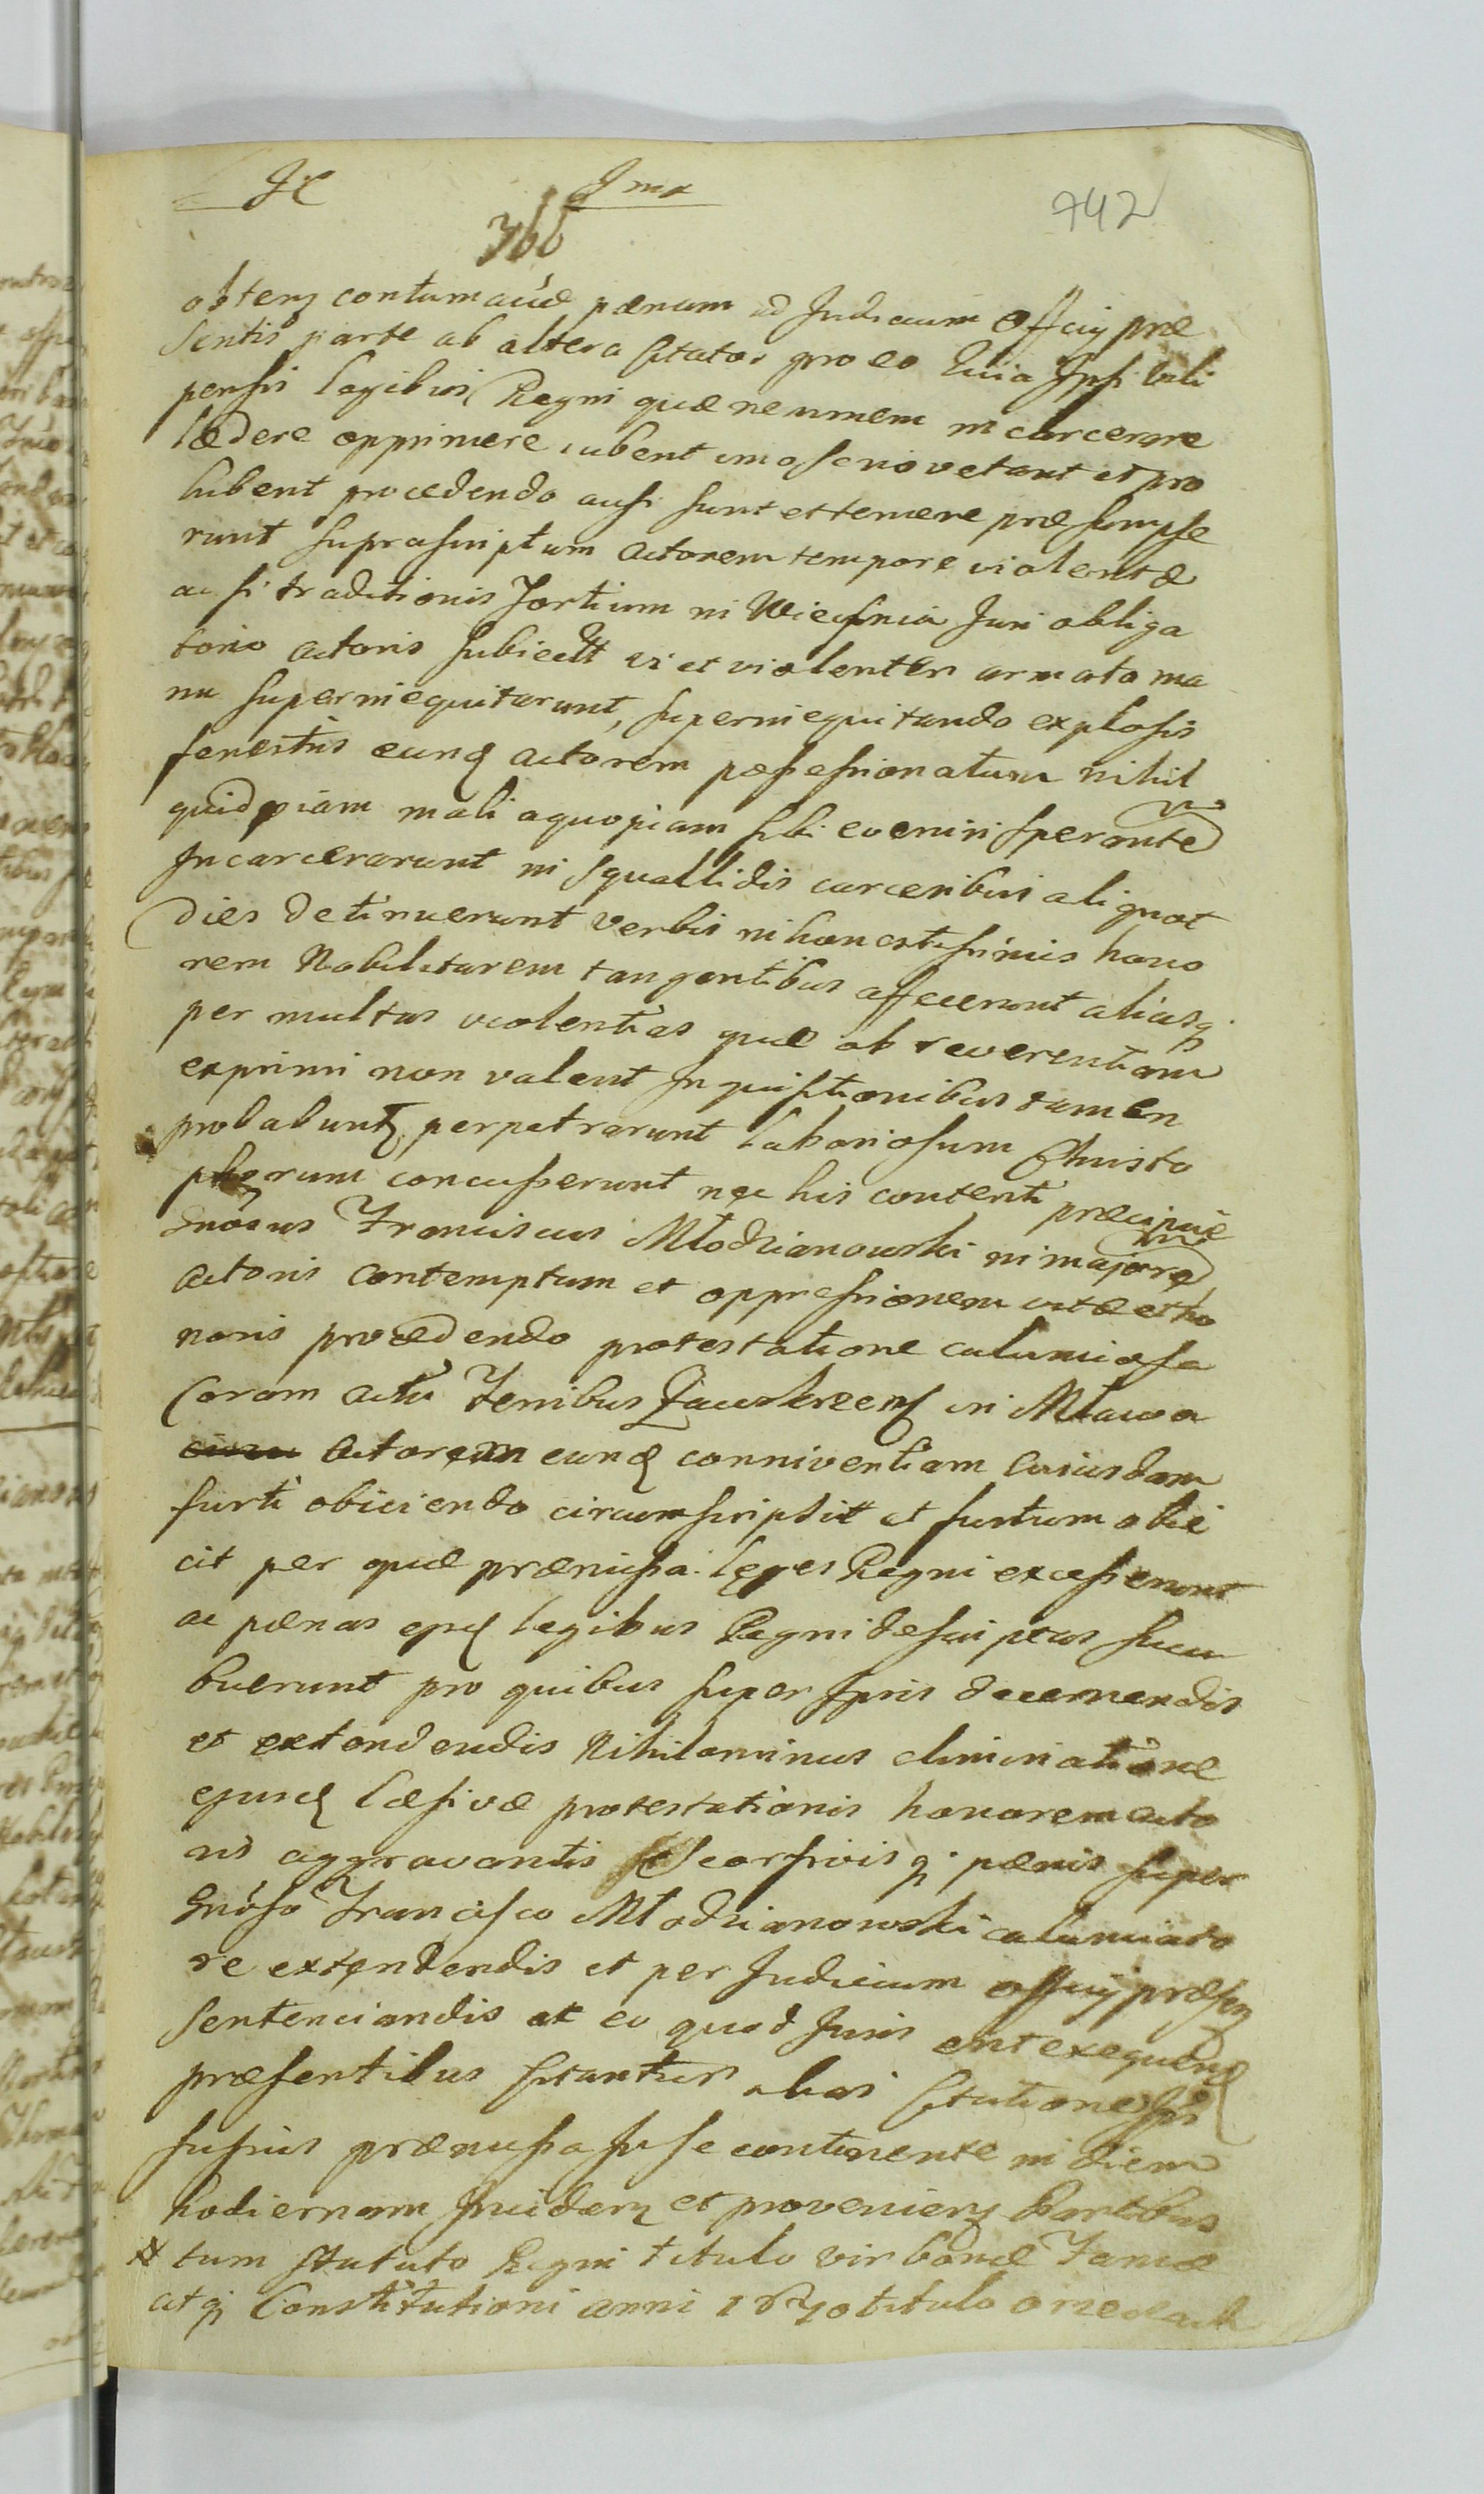 742
366
obtenȝ contumaciæ pænam ad Judicium Officij præ
sentis parte ab altera citatos pro eo Quia Ipsi vili
pensis legibus Regni quæ neminem incarcerare
lædere opprimere iubent imo serio vetant et pro
hibent procedendo ausi sunt et temere præsumpse
runt suprascriptum actorem tempore violentæ
ac si traditionis Sortium in Wieczfnia Juri obliga
torio actoris subiectt vi et violenter armata ma
nu superinequitarunt, superinequitando explosis
fenestris eunđ actorem possessionatum nihil
quidpiam mali a quopiam sibi eveniri sperantem
Incarcerarunt in squallidis carceribus aliquot
dies detinuerunt verbis inhonestissimis hono
rem Nobilitarem tangentibus affecerunt aliasq
per multas violentias quæ ob reverentiam
exprimi non valent Inquisitionibus tamen
probabuntȝ perpetrarunt laboriosum Christo
phorum concusserunt nec his contenti præcipue
Gnosus Franciscus Młodzianowski in majorem
actoris contemptum et oppressionem vitæ et ho
noris procedendo protestatione calumiosa
Coram actis Tenibus Zawskrzenȝ in Mława
Actorem eunđ conniventiam cuiusdam
furti obiiciendo circumscripsit et furtum obie
cit per quæ præmissa leges Regni excesserunt
ac pænas ejusđ legibus Regni descriptas succu
buerunt pro quibus super Ipsis decernendis
et extendendis Nihilominus eliminatione
ejusđ læsivæ protestationis honorem acto
ris aggravantis scorsivisq pænis super
Gnoso Francisco Młodzianowski calumiato
re extendendis et per Judicium officij præsenȝ
sentenciandis et eo quod Juris erit exequenđ
præsentibus citantur alias Citatione Ipsa
fusius præmissa in se continente in diem
hodiernam Incidenȝ et provenienȝ Partibus
tum statuto Regni titulo vir bonæ Famæ
atq Constitutioni anni 1670 titulo o